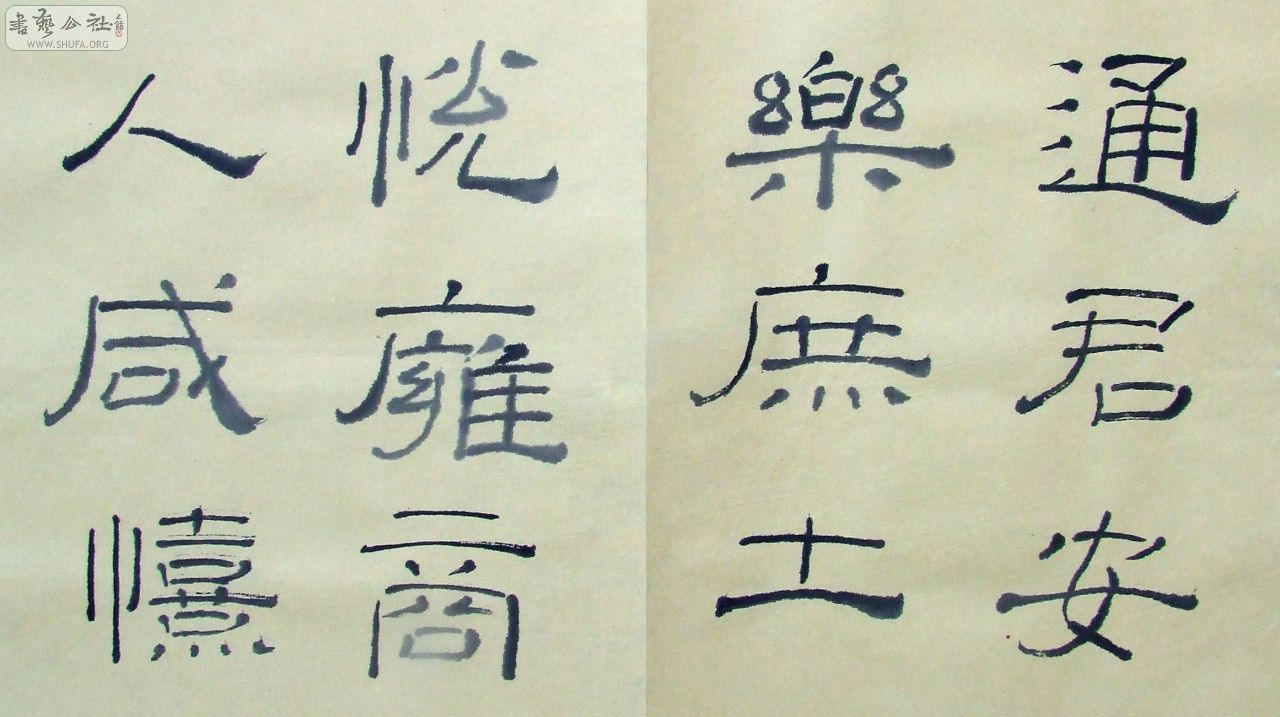 通君安
樂庶士
悅雍商
人咸憘
書藝公社
WWW.SHUFA.ORG